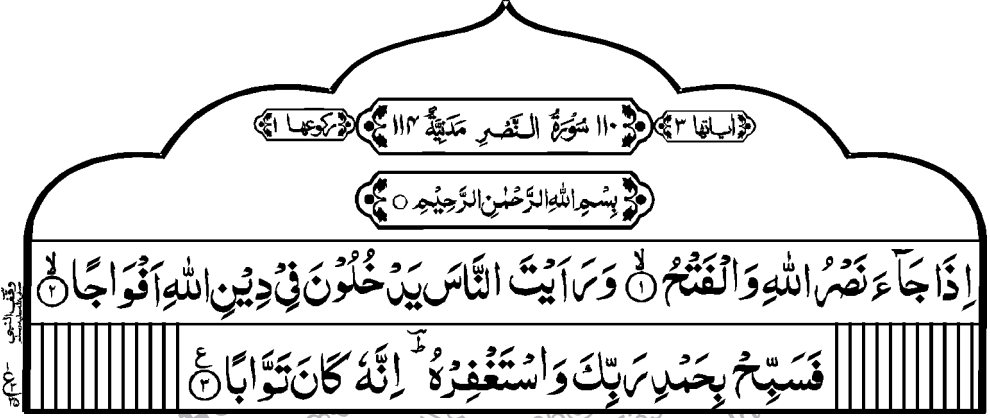 اٰیاتها ۳ ۱۱۰ سُوْرَةُ النَّصْرِ مَدَنِيَّةٌ ۱۱۴ ركوعها ۱
بِسْمِ اللّٰهِ الرَّحْمٰنِ الرَّحِيْمِ ○
اِذَا جَآءَ نَصْرُ اللّٰهِ وَالْفَتْحُ ۙ﴿۱﴾ وَرَاَيْتَ النَّاسَ يَدْخُلُوْنَ فِيْ دِيْنِ اللّٰهِ اَفْوَاجًا ۙ﴿۲﴾
فَسَبِّحْ بِحَمْدِ رَبِّكَ وَاسْتَغْفِرْهُ ؕ اِنَّهٗ كَانَ تَوَّابًا ﴿۳﴾ ع